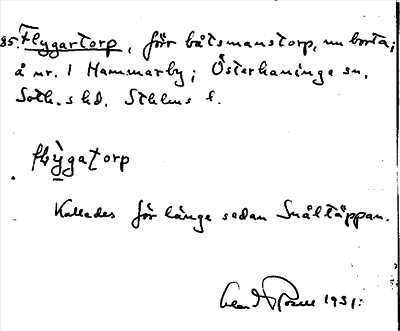 85. Flygartorp, förr båtsmanstorp, nu borta;
å nr. 1 Hammarby; Österhaninge sn.
Soth.s hd. Sthlms l.
flỳgatorp
Kallades för länge sedan Smältäppan.
1931.